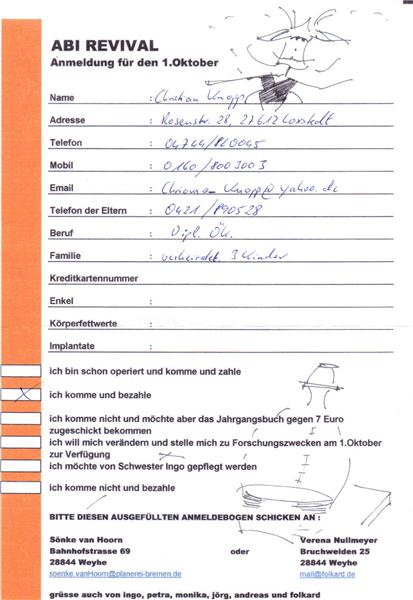 ABI REVIVAL
Anmeldung für den 1.Oktober
Name : Christian Knapp
Adresse : Rosenstr. 28, 27612 Loxstedt
Telefon : 04744/820045
Mobil : 0160/8003003
Email : Knapp@yahoo.de
Telefon der Eltern : 0421/890528
Beruf : Dipl. Ök.
Familie : verheiratet, 3 Kinder
Kreditkartennummer :
Enkel :
Körperfettwerte :
Implantate :
ich bin schon operiert und komme und zahle
X ich komme und bezahle
ich komme nicht und möchte aber das Jahrgangsbuch gegen 7 Euro
zugeschickt bekommen
ich will mich verändern und stelle mich zu Forschungszwecken am 1.Oktober
zur Verfügung
ich möchte von Schwester Ingo gepflegt werden
ich komme nicht und bezahle
BITTE DIESEN AUSGEFÜLLTEN ANMELDEBOGEN SCHICKEN AN :
Sönke van Hoorn Verena Nullmeyer
Bahnhofstrasse 69 oder Bruchweiden 25
28844 Weyhe 28844 Weyhe
soenke.vanHoorn@planerei-bremen.de mail@folkard.de
grüsse auch von ingo, petra, monika, jörg, andreas und folkard